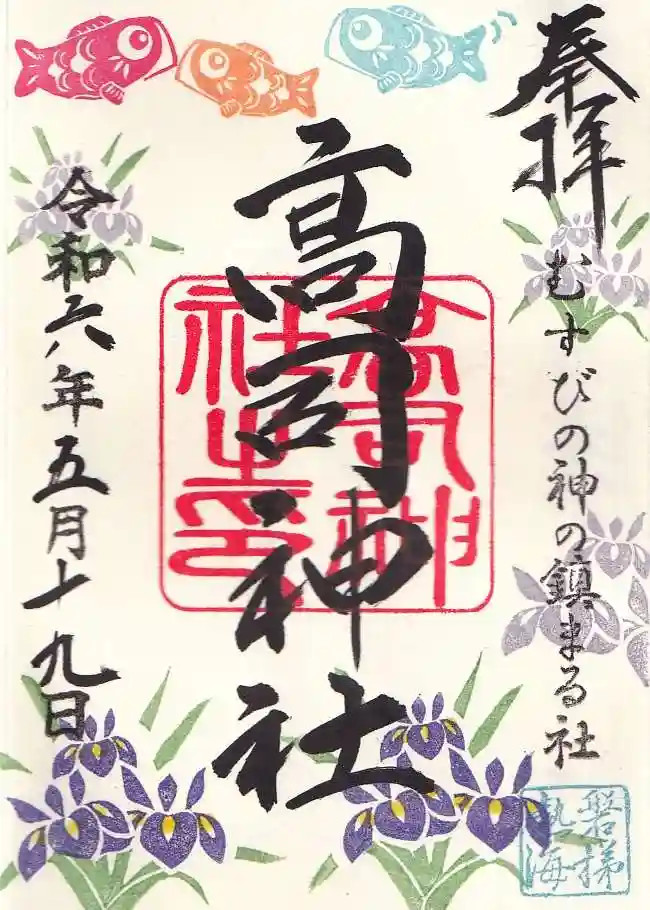 奉拝
むすびの神の鎮まる社
磐梯
熱海
高司神社
高司神
社之印
令和六年五月十九日